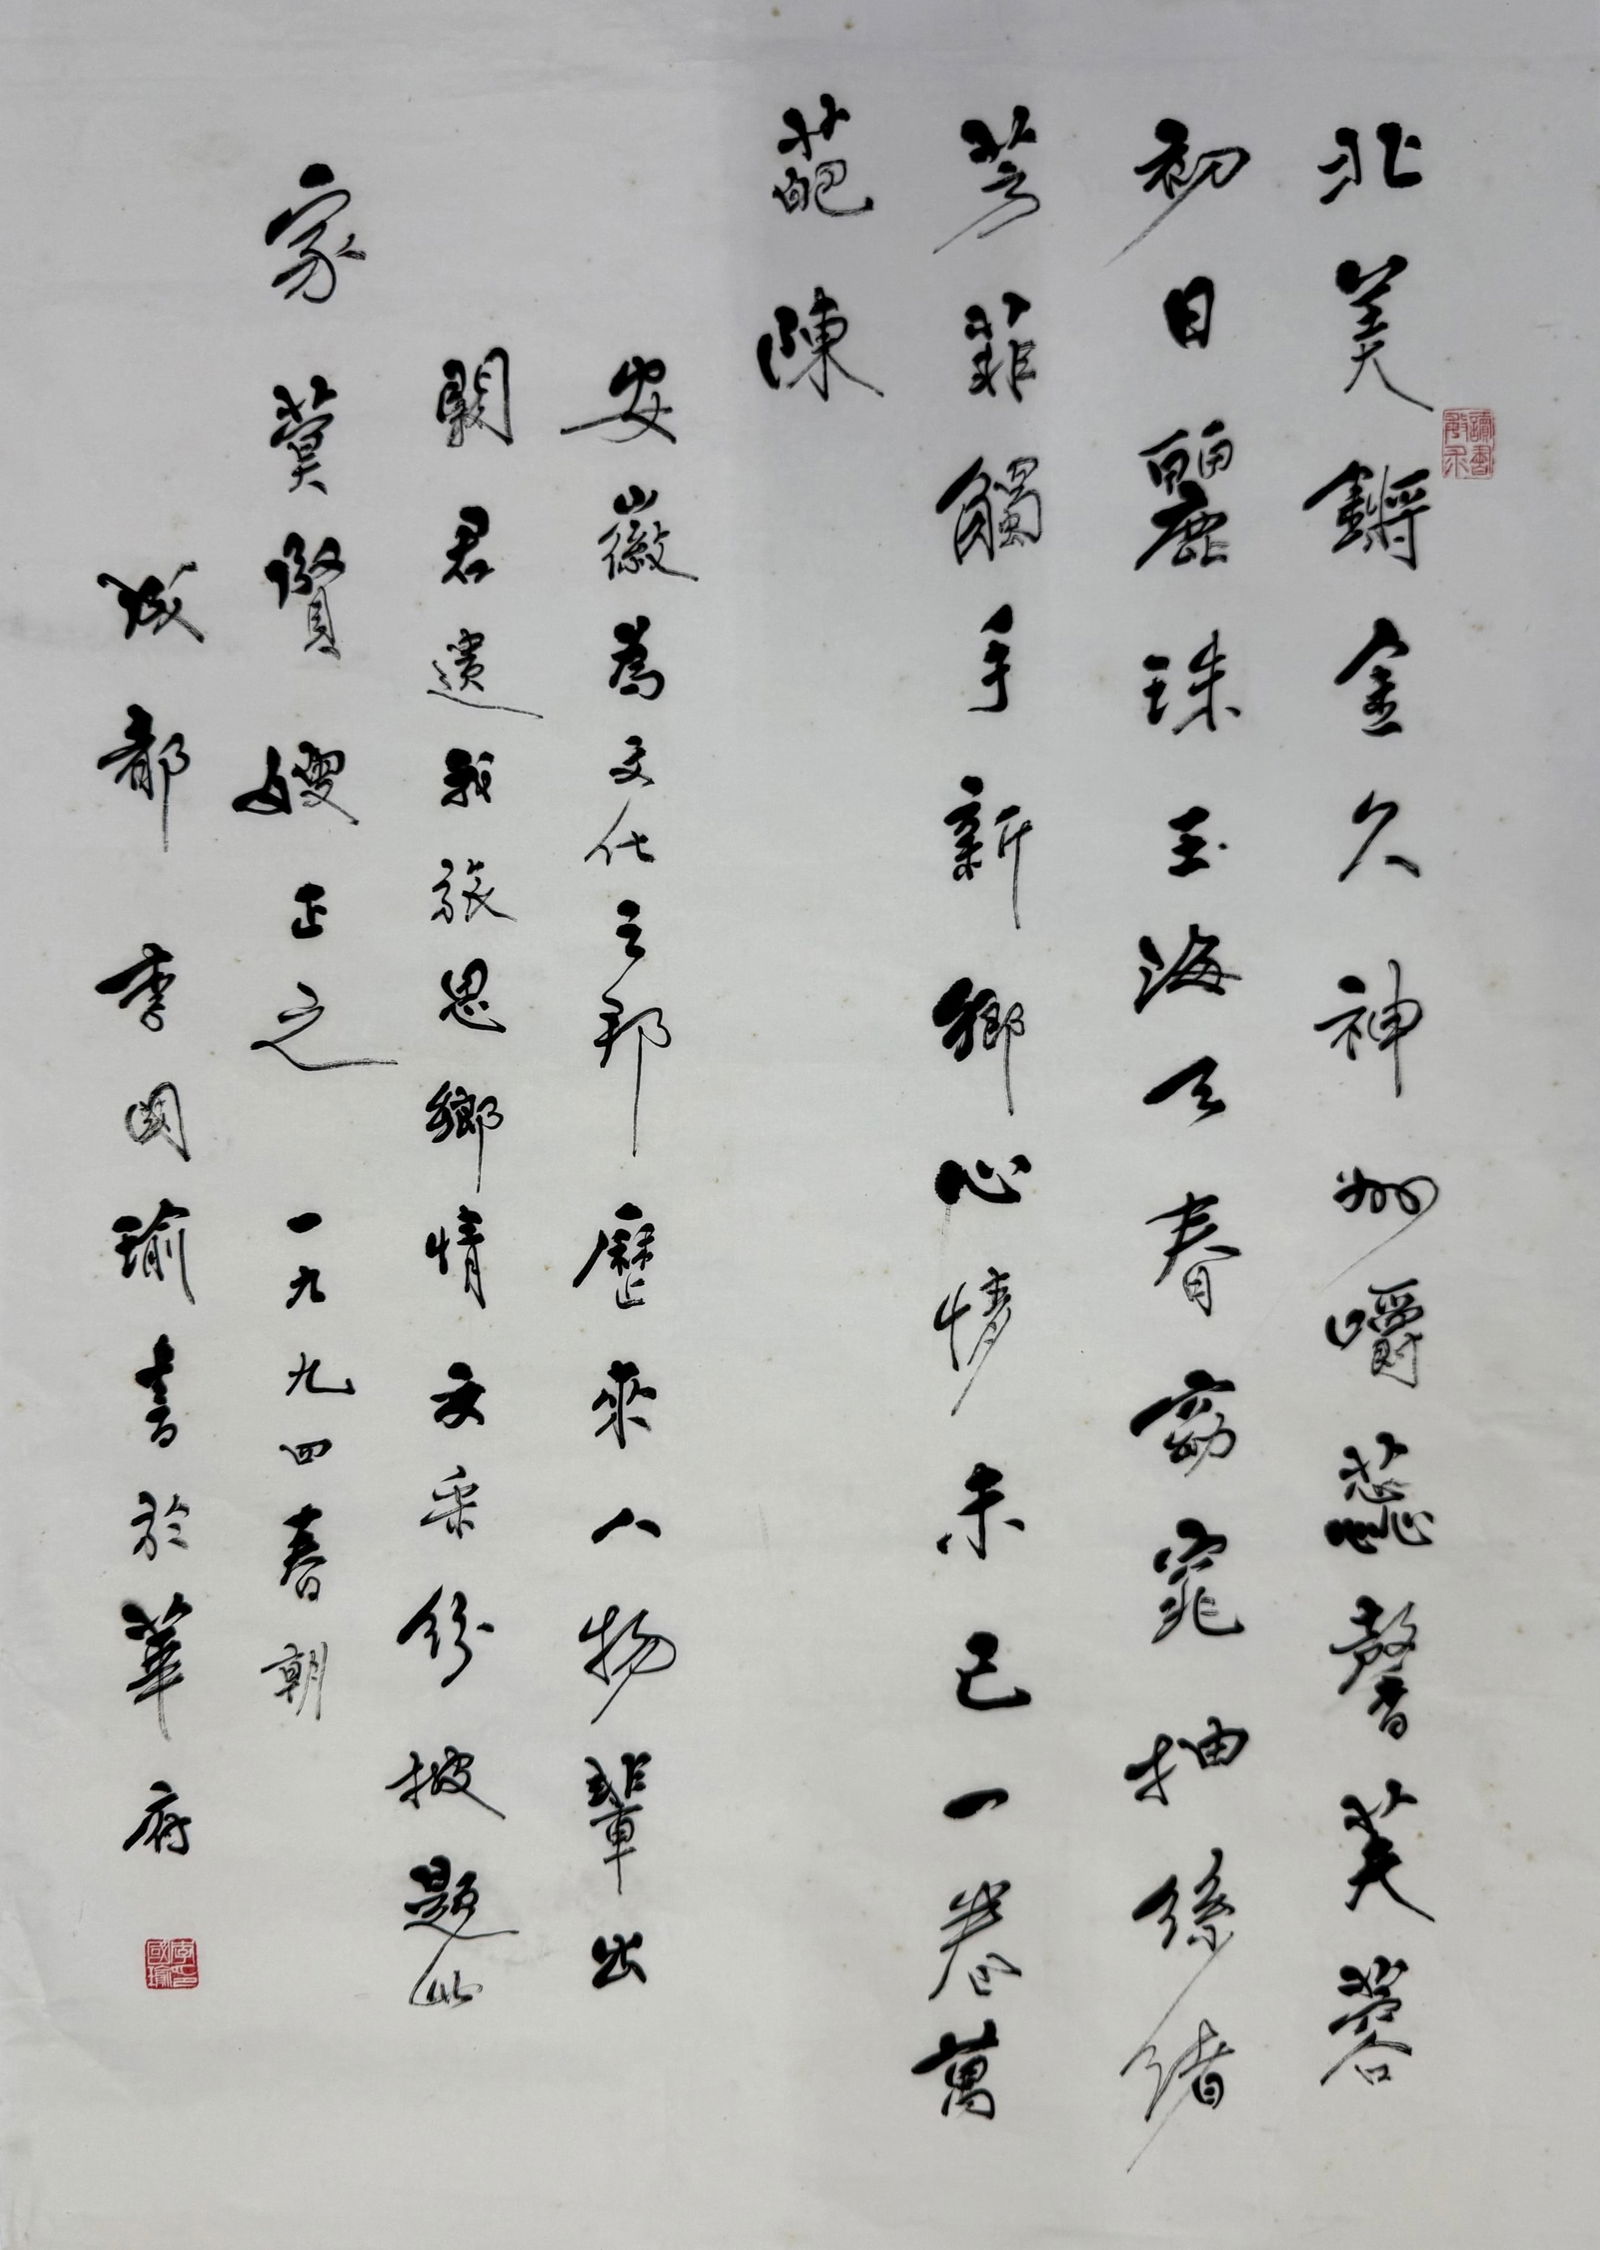 北美鏘金久神州嚼蕊馨芙蓉
初日麗珠玉海天春窈窕抽絲緒
芳菲觸手新鄉心情未已一卷萬
葩陳
安徽為文化之邦歷來人物輩出
閱君遺我旅思鄉情文采紛披題此
家蓂賢嫂正之 一九九四春朝
成都李國瑜書於華府